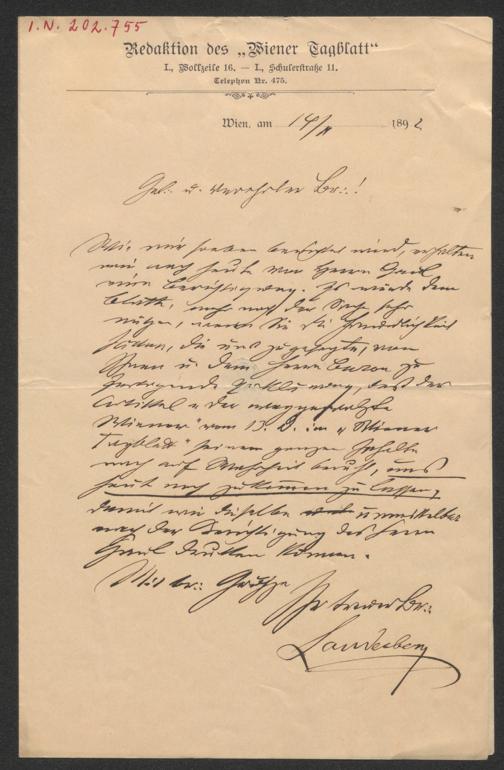 I.N. 202.755
Redaktion des „Wiener Tagblatt“
I., Wollzeile 16. — I., Schulerstraße 11.
Telephon Nr. 475.
Wien, am 14/II 1892
Gel. u. verehrter Br.:!
Wie mir soeben berichtet wird, erhalten
wir noch heute von Herrn
eine Berichtigung. Es würde dem
Blatte, auch der Sache sehr
nützen, wenn Sie die Freundlichkeit
hätten, die uns zugesagte, von
Ihnen u. dem Herrn Baron zu
fertigende Erklärung, daß der
Artikel
Wiener" vom 13. d. im „Wiener
Tagblatt" seinem ganzen Inhalte
nach auf Wahrheit beruht, uns
heut noch zukommen zu lassen,
damit wir dieselbe unmittelbar
nach der Berichtigung des Herrn
drucken können.
Mit br.: Grüße
Ihr treuer Br.: